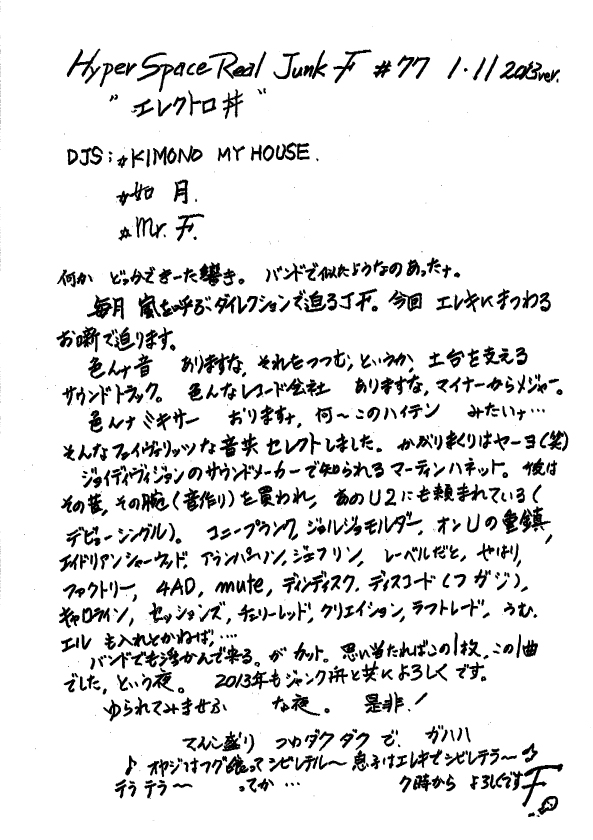 Hyper Space Real Junk F #77 1・11 2013ver.
"エレクトロ丼"
DJS; #KIMONO MY HOUSE.
#如月.
#Mr. F.
何か どっかできーた響き。 バンドで似たようなのあったナ。
毎月 嵐を呼ぶ、ダイレクションで迫るJ F。今回 エレキにまつわる
お噺で迫ります。
色んナ音 ありますな, それをつつむ, というか, 土台を支える
サウンドトラック。 色んなレコード会社 ありますな, マイナーからメジャー。
色んナ ミキサー おりますナ, 何〜このハイテン みたいナ…
そんなファイヴァリッツな音共 セレクトしました。 かぶりまくりはヤーヨ(笑)
ジョイディヴィジョンのサウンドメーカーで知られる マーティンハネット。 彼は
その昔, その腕(音作り)を買われ, あのU2にも頼まれている(
デビューシングル)。 コニープランク, ジョルジョモルダー, オンUの重鎮,
エイドリアンシャーウッド, アランパーソン, ジェフリン, レーベルだと, やはり,
ファクトリー, 4AD, mute, ディンディスク, ディスコード(フガジ),
キャロライン, セッションズ, チェリーレッド, クリエイション, ラフトレード, うむ.
エル も入れとかねば,…
バンドでも浮かんで来る。が カット。 思い当たればこの1枚, この1曲
でした, という夜。 2013年もジャンク舟と共によろしくです。
ゆられてみませふ な夜。 是非!
てんこ盛り つゆダクダク で ガハハ
♪ オヤジはフグ喰ってシビレテル〜 息子はエレキでシビレテラ〜♪
テラ テラ〜 ってか… 9時から よろしくです F